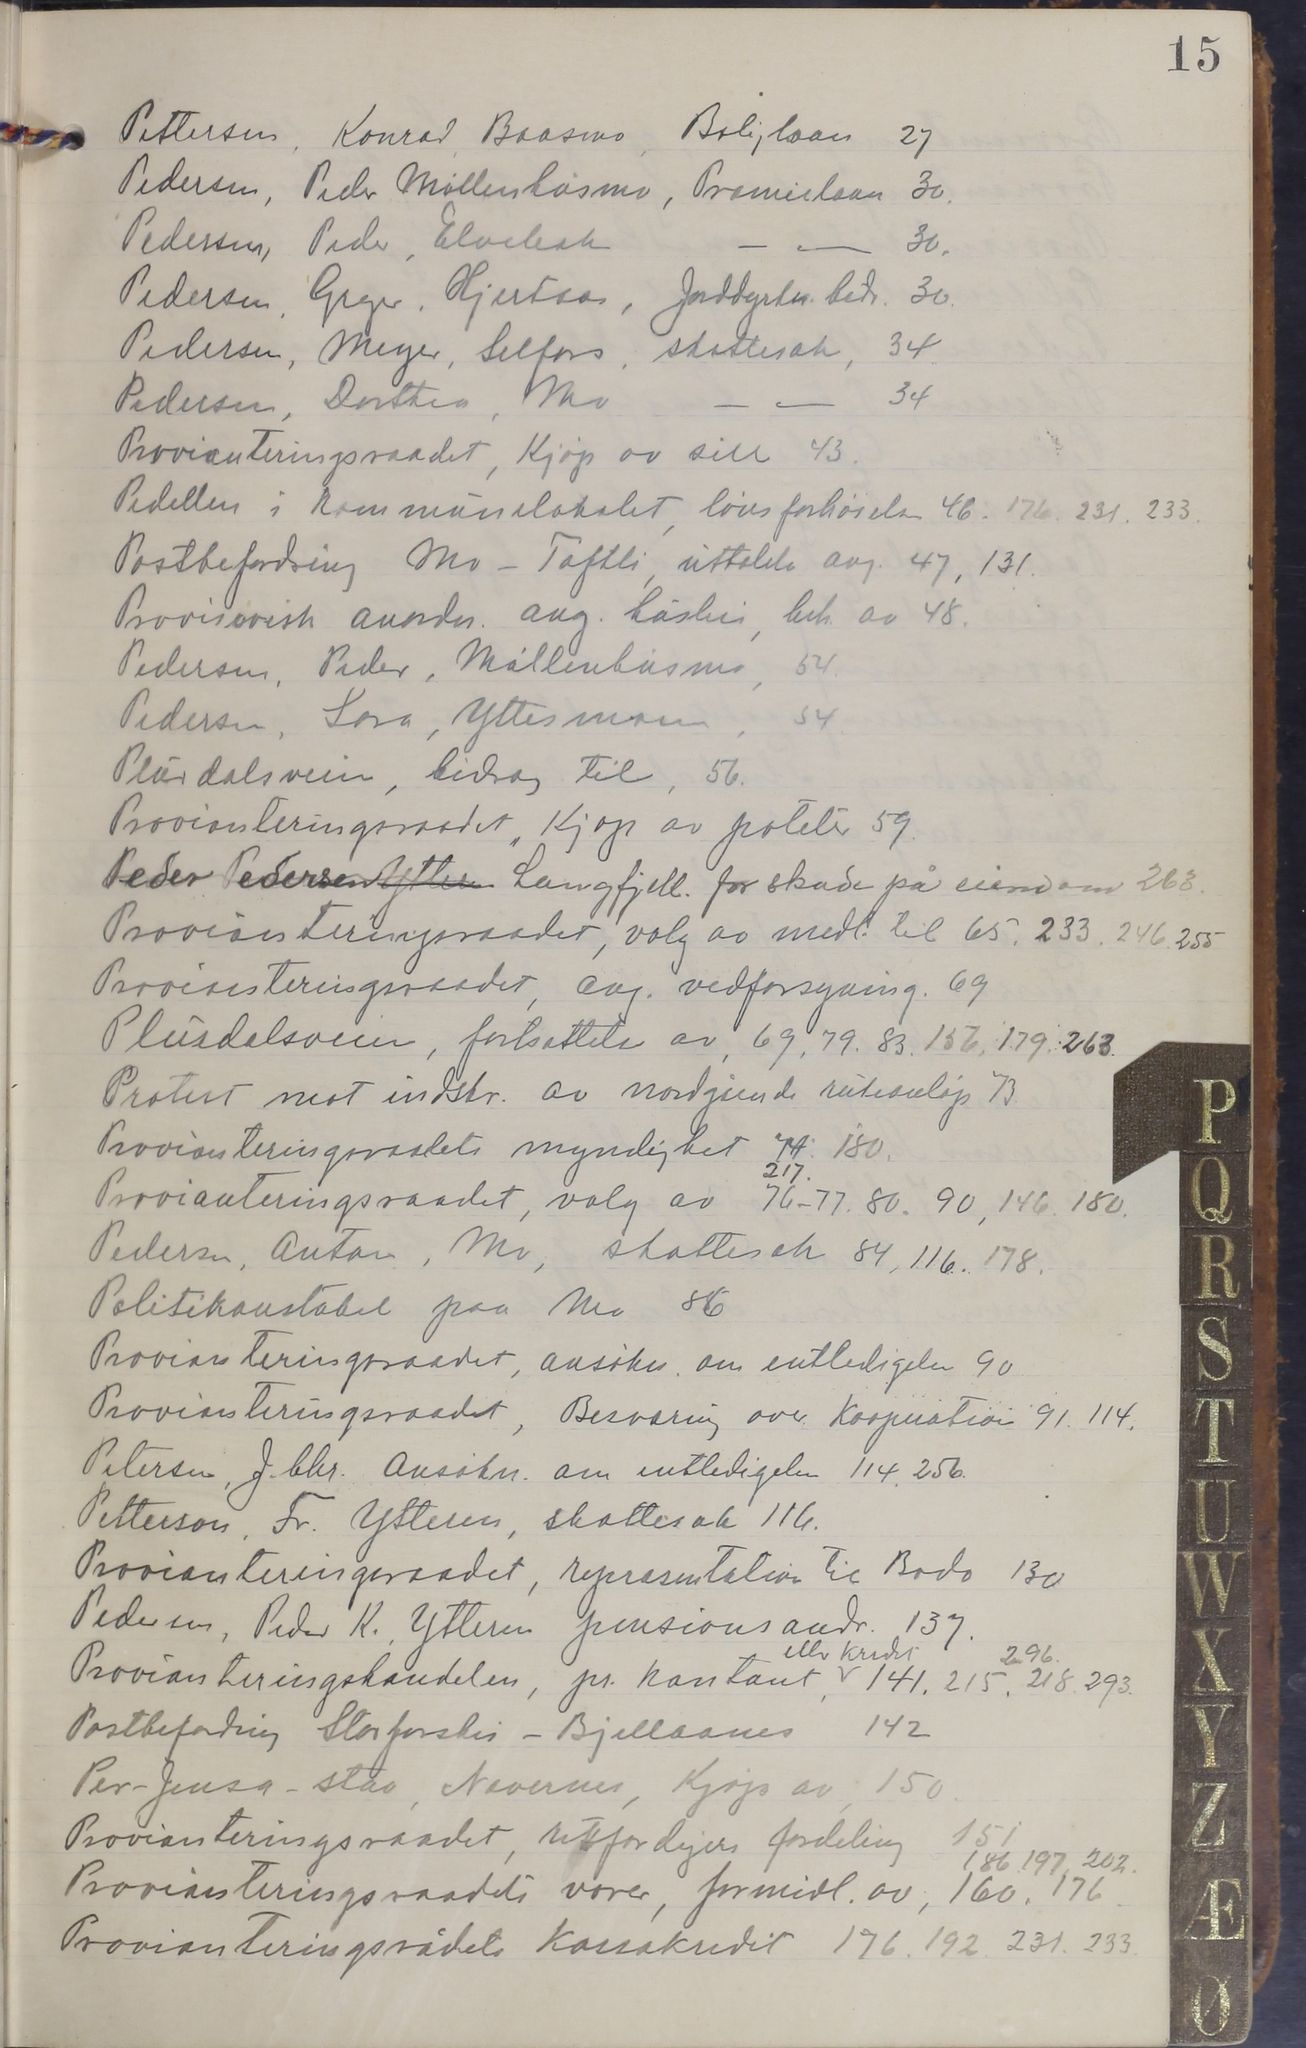 15
Pettersen, Konrad, Baasmo, Boliglaan 27
Pedersen, Peder Möllenbüsmo, Præmielaan 30.
Pedersen, Peder, Elvebak — — 30.
Pedersen, Greger, Hjertaas, Jorddyrkn. bidr. 30.
Pedersen, Meyer, Selfors, skattesak, 34
Pedersen, Dorthea, Mo — — 34
Provianteringsraadet, Kjøp av sill 43.
Pedellen i kommünelokalet, lönsforhöielse 46. 176. 231. 233.
Postbefordring Mo – Toftli, üttalelse ang. 47, 131.
Provisorisk anordn. ang. hüsleie, beh. av 48.
Pedersen, Peder, Möllenbüsmo, 54.
Pedersen, Lova, Yttesmoen, 54
Plürdalsveien, bidrag til, 56.
Provianteringsraadet, Kjøp av poteter 59.
Peder Pedersen Ytteren Langfjell. for skade på eiendom 263.
Provianteringsraadet, valg av medl. til 65. 233. 246. 255
Provianteringsraadet, ang. vedforsyning. 69
Plürdalsveien, fortsættelse av, 69, 79. 83. 156. 179. 263.
Protest mot indskr. av nordgüende rüteanløp 73.
Provianteringsraadets myndighet 74. 180.
217.
Provianteringsraadet, valg av 76-77. 80. 90, 146. 180.
Pedersen, Anton, Mo, skattesak 84, 116. 178.
Politikonstabel paa Mo 86
Provianteringsraadet, ansökn. om entledigelse 90
Provianteringsraadet, Besværing over Kooperation 91. 114.
Petersen, J. Chr. Ansökn. om entledigelse 114, 256.
Petterson, Fr. Ytteren, skattesak 116.
Provianteringsraadet, repræsentation til Bodø 130
Pedersen, Peder K. Ytteren pensionsandr. 137.
eller Kredit 296.
Provianteringshandelen, pr. kontant, v 141. 215. 218. 293.
Postbefordring Storforshei – Bjellaanes 142
Per-Jensa-stao, Nævernes, Kjøp av, 150.
Provianteringsraadet, rettferdigere fordeling 151
186. 197. 202.
Provianteringsraadets varer, formidl. av, 160. 176
Provianteringsrådets Kassakredit 176. 192. 231. 233.
P
Q
R
S
T
U
W
X
Y
Z
Æ
Ø